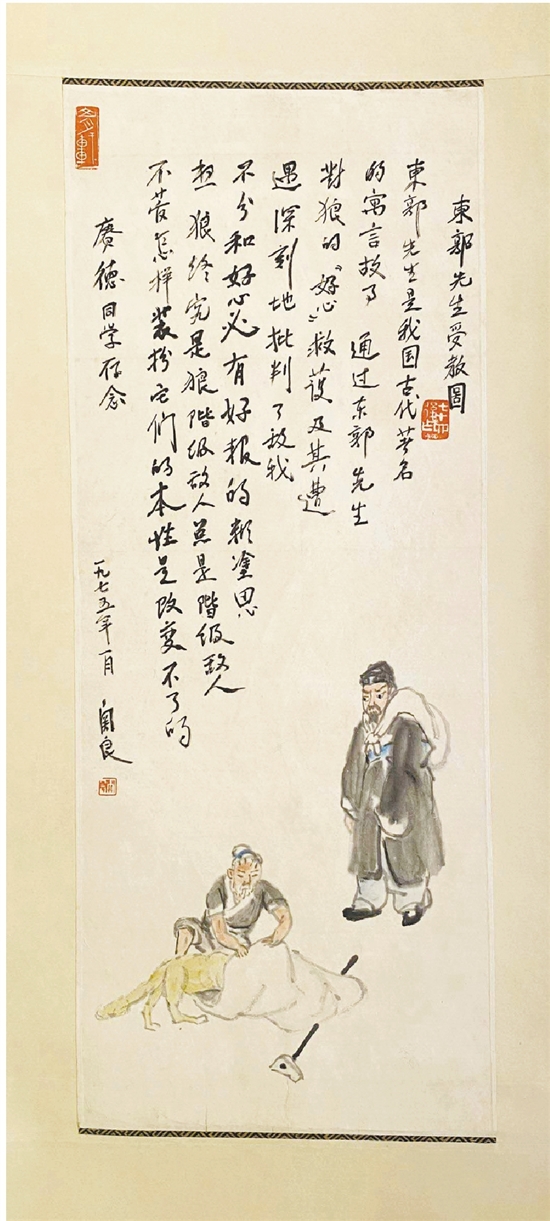 東郭先生受教圖
東郭先生是我国古代著名
的寓言故事 通过东郭先生
對狼的“好心”救護及其遭
遇深刻地批判了敌我
不分和好心必有好报的糊塗思
想 狼终究是狼階级敌人总是階级敌人
不管怎样装扮它们的本性是改变不了的
赓德同学存念
一九七五年一月 関良